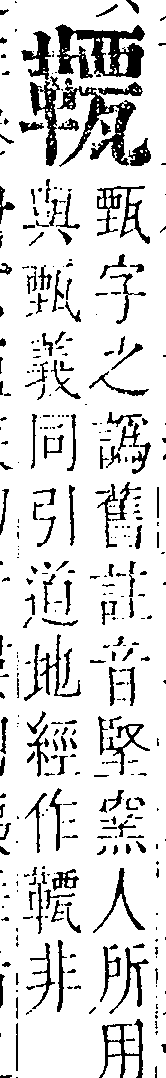 甄字之譌舊註音堅窯人所用
與甄義同引道地經作非